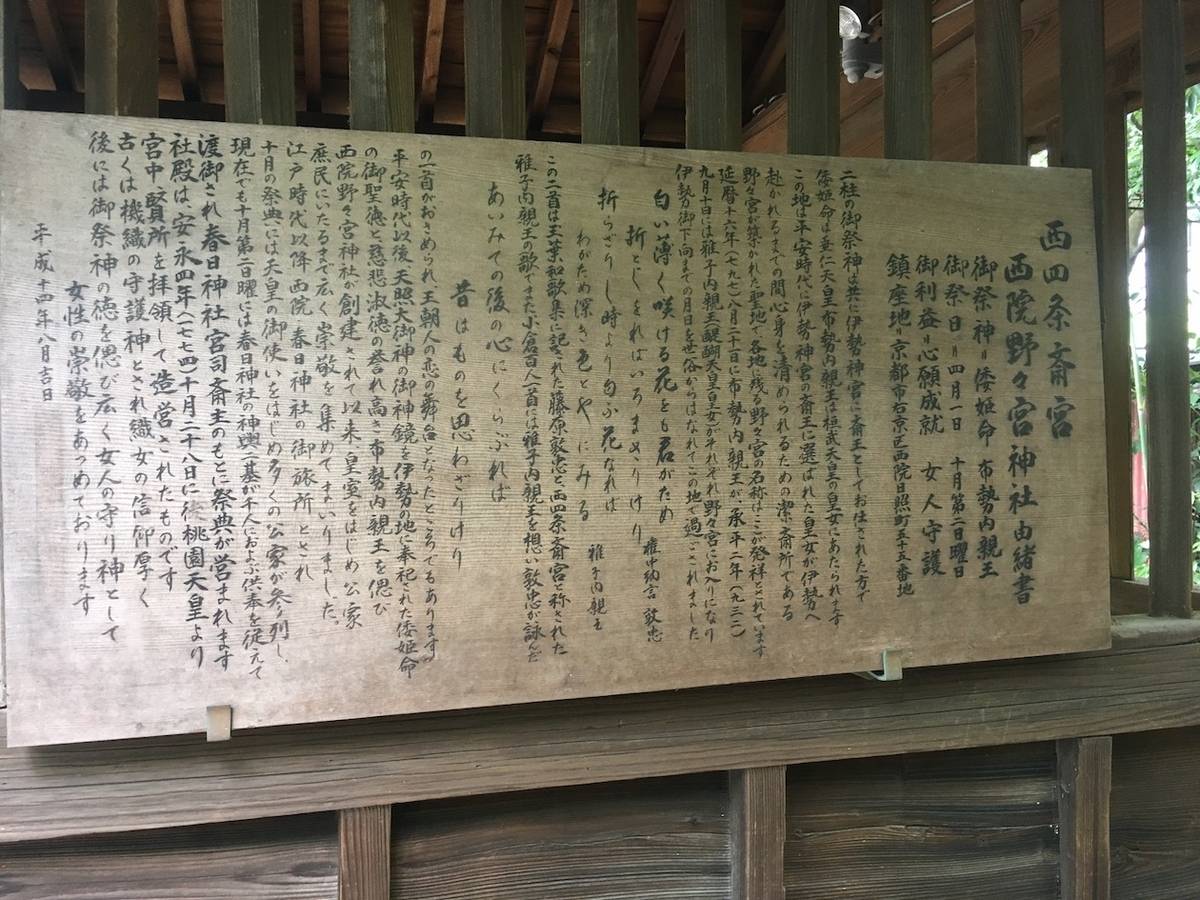 西四条斎宮
西院野々宮神社由緒書
御祭神〃倭姫命 布勢内親王
御祭日〃四月一日 十月第二日曜日
御利益〃心願成就 女人守護
鎮座地〃京都市右京区西院日照町五十五番地
二柱の御祭神は共に伊勢神宮に斎王としてお仕された方で
倭姫命は垂仁天皇、布勢内親王は桓武天皇の皇女にあたられます
この地は平安時代に伊勢神宮の斎王に選ばれた皇女が伊勢へ
赴かれるまでの間心身を清められるための潔斎所である
野々宮が築かれた聖地で各地に残る野々宮の名称はここが発祥とされています
延暦十六年(七九七)八月二十日に布勢内親王が承平二年(九三二)
九月十日には雅子内親王(醍醐天皇皇女)がそれぞれ野々宮にお入りになり
伊勢御下向までの月日を世俗からはなれてこの地で過ごされました
匂い薄く咲ける花をも君がため
折としをればいろまさりけり
権中納言 敦忠
折らざりし時より匂ふ花なれば
わがため深き色とやにみる
雅子内親王
この二首は玉葉和歌集に記された藤原敦忠と、西四条斎宮と称された
雅子内親王の歌、また小倉百人一首には雅子内親王を想い敦忠が詠んだ
あいみての後の心にくらぶれば
昔はものを思わざりけり
の一首がおさめられ、王朝人の恋の舞台となったところでもあります
平安時代以後、天照大御神の御神鏡を伊勢の地に奉祀された倭姫命
の御聖徳と慈悲淑徳の誉れ高き布勢内親王を偲び
西院野々宮神社が創建されて以来、皇室をはじめ公家
庶民にいたるまで広く崇敬を集めてまいりました
江戸時代以降西院 春日神社の御旅所とされ
十月の祭典には天皇の御使いをはじめ多くの公家が参列し、
現在でも十月第二日曜には春日神社の神輿二基が千人におよぶ供奉を従えて
渡御され春日神社宮司斎主のもとに祭典が営まれます
社殿は、安永四年(一七七四)十月二十八日に後桃園天皇より
宮中 賢所を拝領して造営されたものです
古くは機織の守護神とされ織女の信仰厚く
後には御祭神の徳を偲び広く女人の守り神として
女性の崇敬をあつめております
平成十四年八月吉日